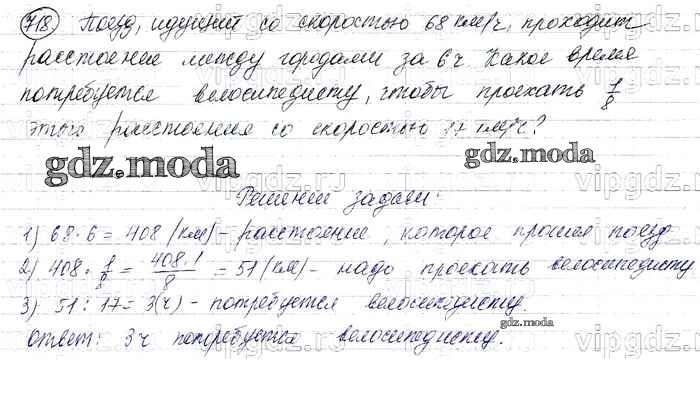 718 Поезд, идущий со скоростью 68 км/ч, проходит
расстояние между городами за 6 ч. Какое время
потребуется велосипедисту, чтобы проехать 1/8
этого расстояния со скоростью 17 км/ч?
gdz.moda
gdz.moda
Решение задачи:
1) 68 · 6 = 408 (км) - расстояние, которое прошел поезд
2) 408 · 1/8 = 408·1/8 = 51 (км) - надо проехать велосипедисту
3) 51 : 17 = 3 (ч) - потребуется велосипедисту.
gdz.moda
Ответ: 3 ч потребуется велосипедисту.